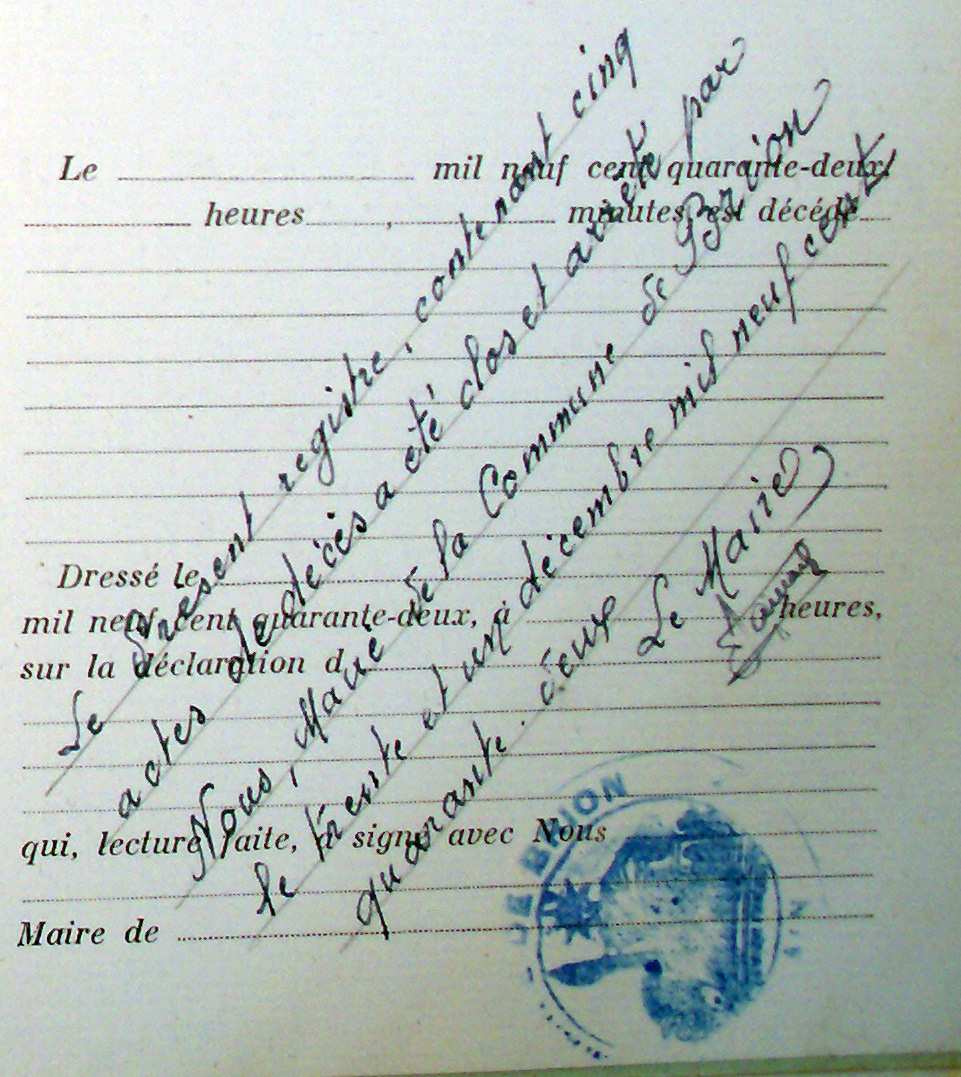 Le mil neuf cent quarante-deux,
heures , minutes, est décédé
Dressé le
mil neuf cent quarante-deux, à heures,
sur la déclaration d
qui, lecture faite, a signé avec Nous
Maire de
Le présent registre, contenant cinq
actes de décès a été clos et arrêté par
Nous, Maire de la Commune de Brion
le trente et un décembre mil neuf cent
quarante-deux Le Maire
DE BRION